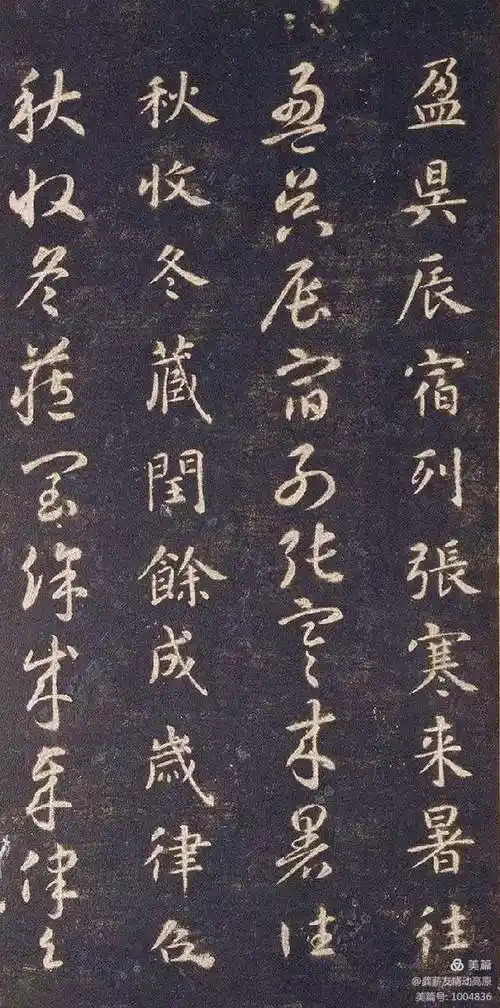 盈昃辰宿列張寒来暑往
盈昃辰宿列張寒来暑往
秋收冬藏閏餘成歲律召
秋收冬藏閏餘成歲律召
美篇
@龚薪友情动高原
美篇号: 1004836